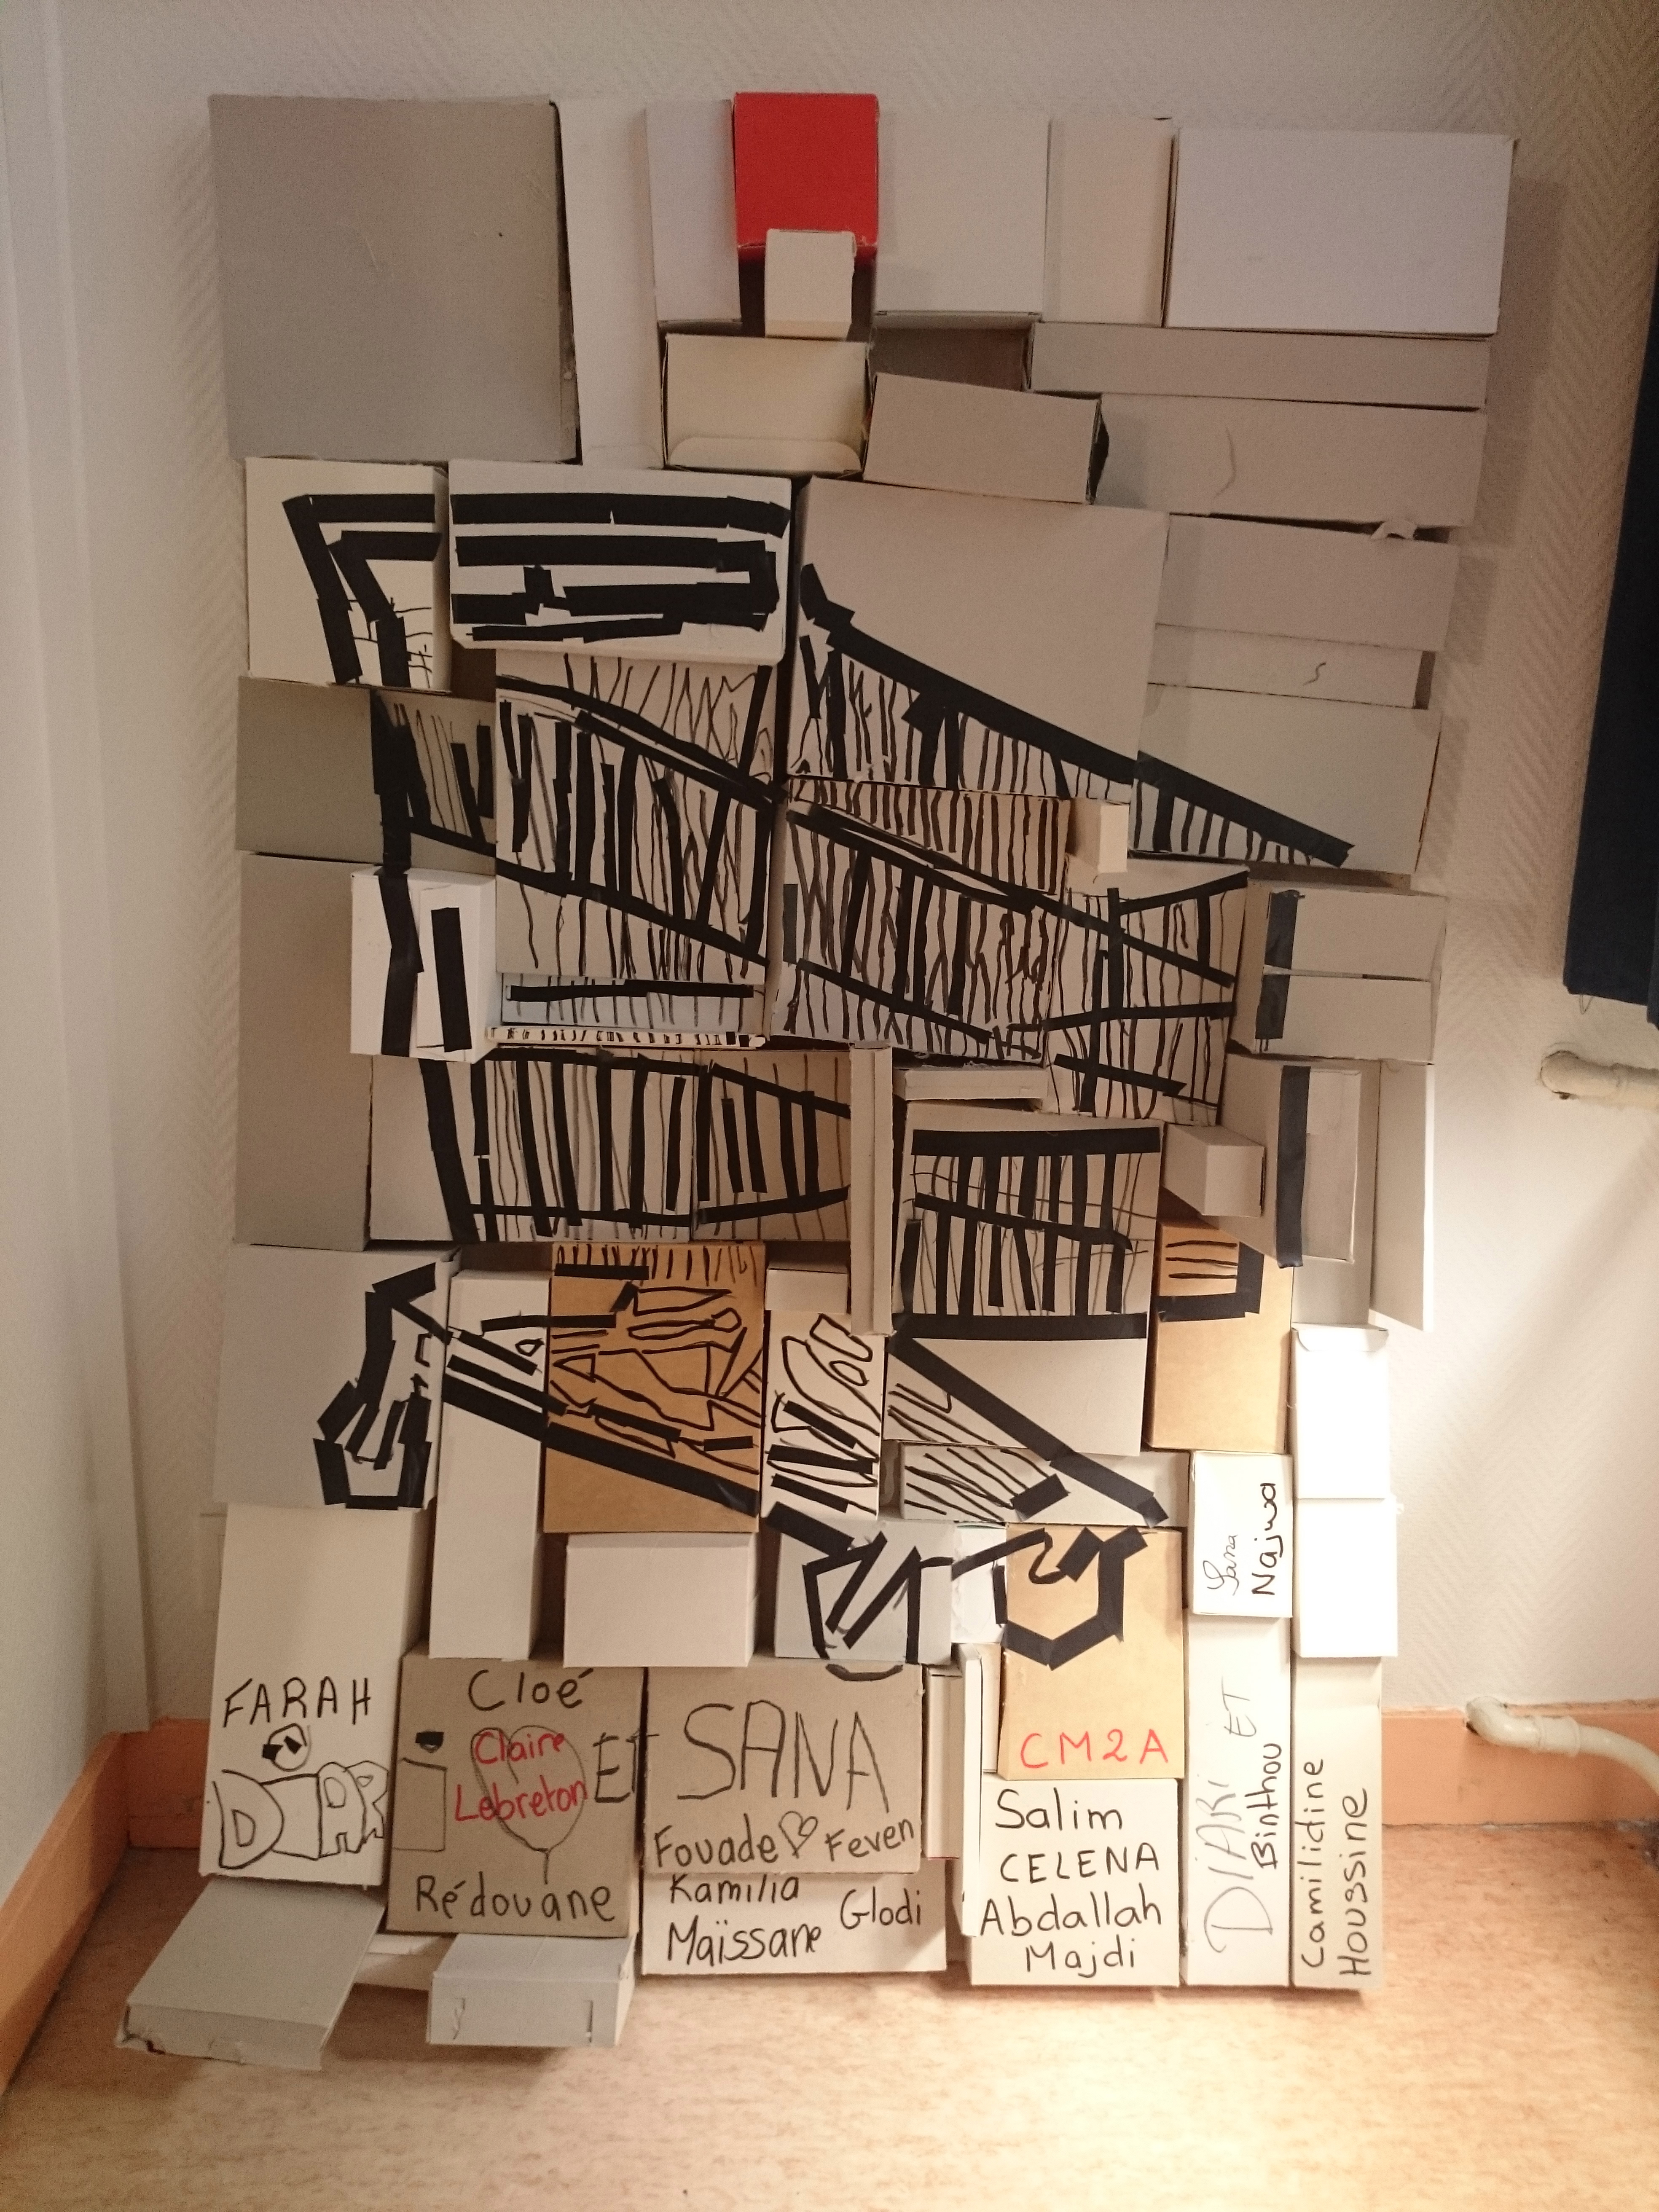 FARAH
Cloé
Claire
Lebreton
ET
Rédouane
SANA
Fouade Feven
Kamilia
Maïssane Glodi
CM2A
Salim
CELENA
Abdallah
Majdi
Sana
Najwa
DIARI ET
Binthou
Camilidine
Houssine